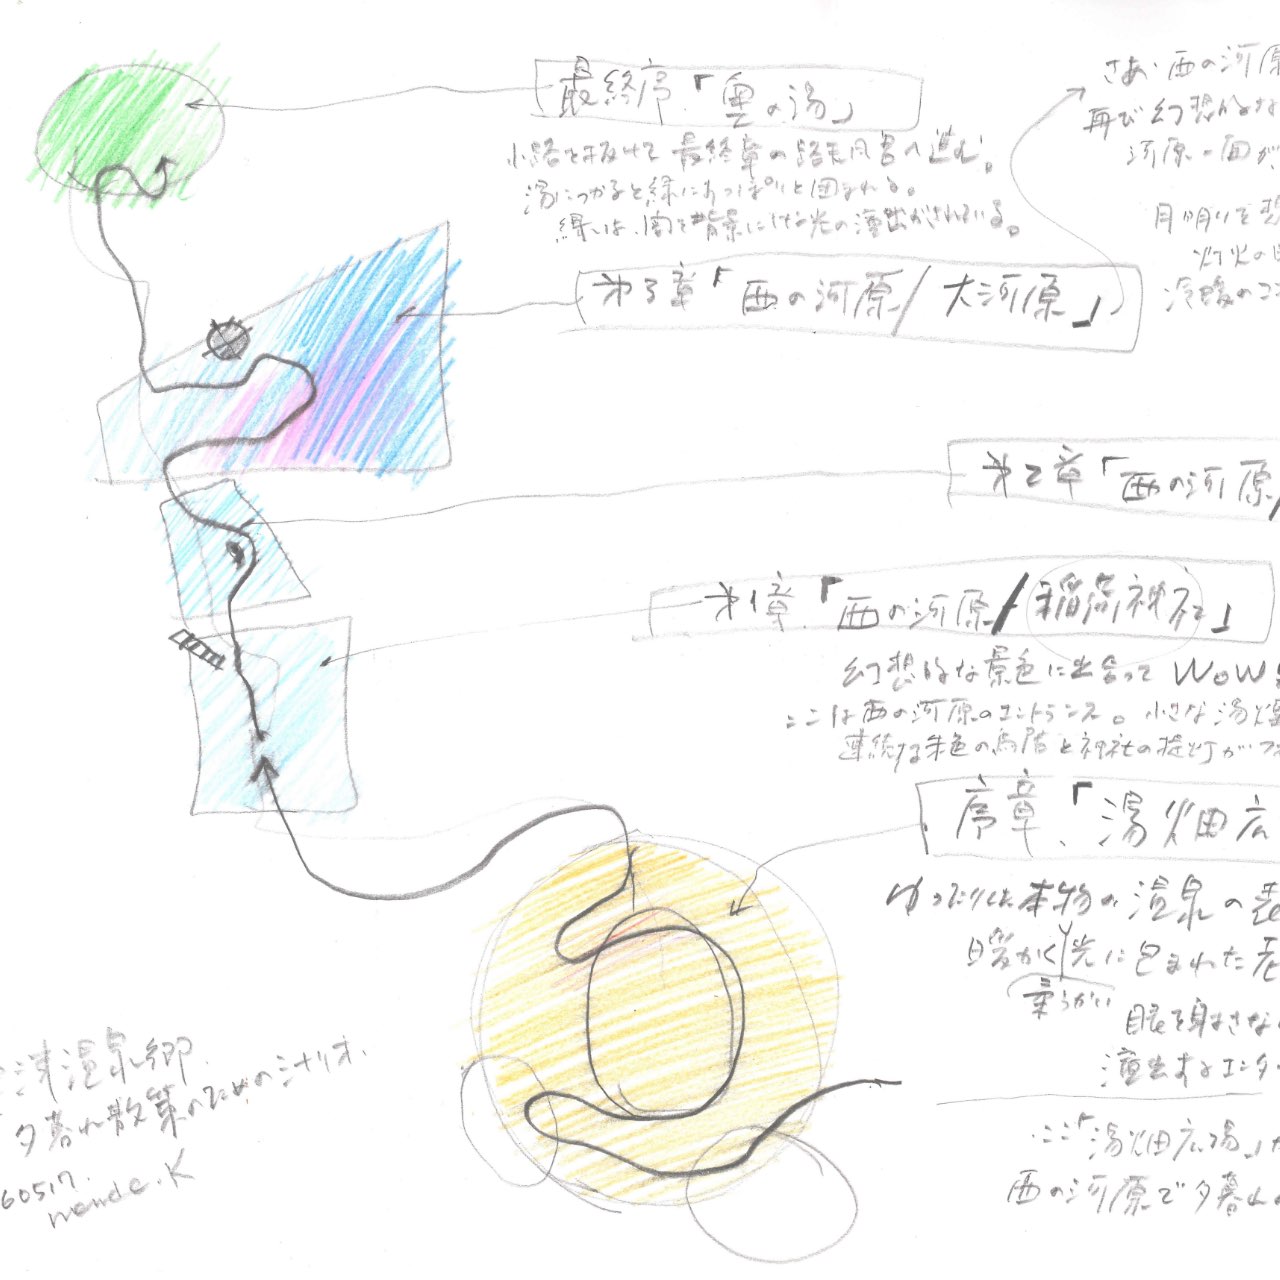 最終序.「奥の湯」
小路を抜けて最終章の露天風呂へ進む。
湯につかると緑にすっぽりと囲まれる。
緑は、闇を背景にした光の演出がされている。
さあ、西の河原
再び幻想的な
河原一面が
月明りを
灯火の
冷暖のコン
第3章「西の河原/大河原」
第2章「西の河原/
第1章.「西の河原/稲荷神社」
幻想的な景色に出会って WOW
ここは西の河原のエントランス。小さな湯煙
連続する朱色の鳥居と神社の提灯が
序章.「湯畑広
ゆったりした本物の温泉の表
暖かく光に包まれた
柔らかい
眼を射さない
演出するエンター
ここ「湯畑広場」
西の河原で夕暮れの
津温泉郷.
夕暮れ散策のためのシナリオ.
60517.
mende.K